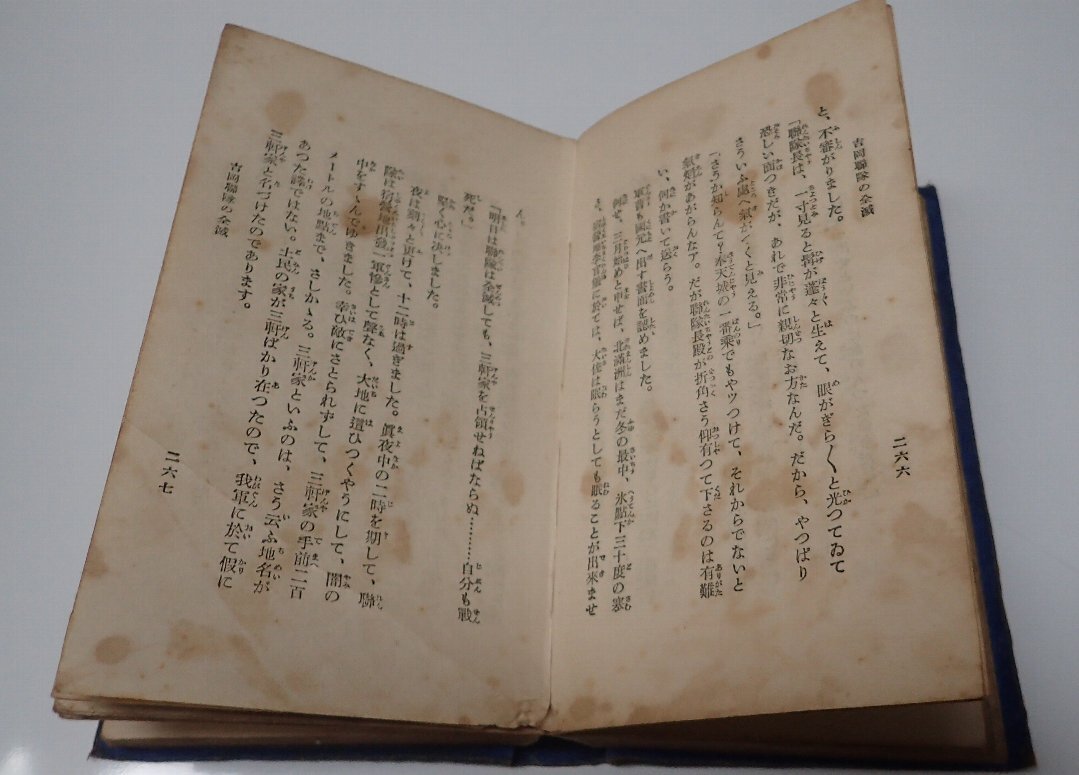 吉岡聯隊の全滅
二六六
と、不審がりました。
「聯隊長は、一寸見ると髯が蓬々と生えて、眼がぎら〱と光つてゐて
恐しい面つきだが、あれで非常に親切なお方なんだ。だから、やつぱり
さういふ處へ氣がつくと見える。」
「さうか知らんて？奉天城の一番乘でもやツつけて、それからでないと
氣焰があがらんなア。だが聯隊長殿が折角さう仰有つて下さるのは有難
い、何か書いて送らう。
軍曹も國元へ出す書面を認めました。
何せ、三月始めと申せば、北滿洲はまだ冬の最中、氷點下三十度の寒
さ、李官堡に於ては、大佐は眠らうとしても眠ることが出來ませ
ん。
「明日は聯隊は全滅しても、三軒家を占領せねばならぬ………自分も戰
死だ。」
堅く心に決しました。
夜は刻々と更けて、十二時は過ぎました。眞夜中の二時を期して、聯
隊は出發、軍慘として聲なく、大地に這ひつくやうにして、闇の
中をすゝんでゆきました。幸ひ敵にさとられずして、三軒家の手前二百
メートルの地點まで、さしかゝる。三軒家といふのは、さう云ふ地名が
あつた譯ではない。土民の家が三軒ばかり在つたので、我軍に於て假に
三軒家と名づけたのであります。
吉岡聯隊の全滅
二六七